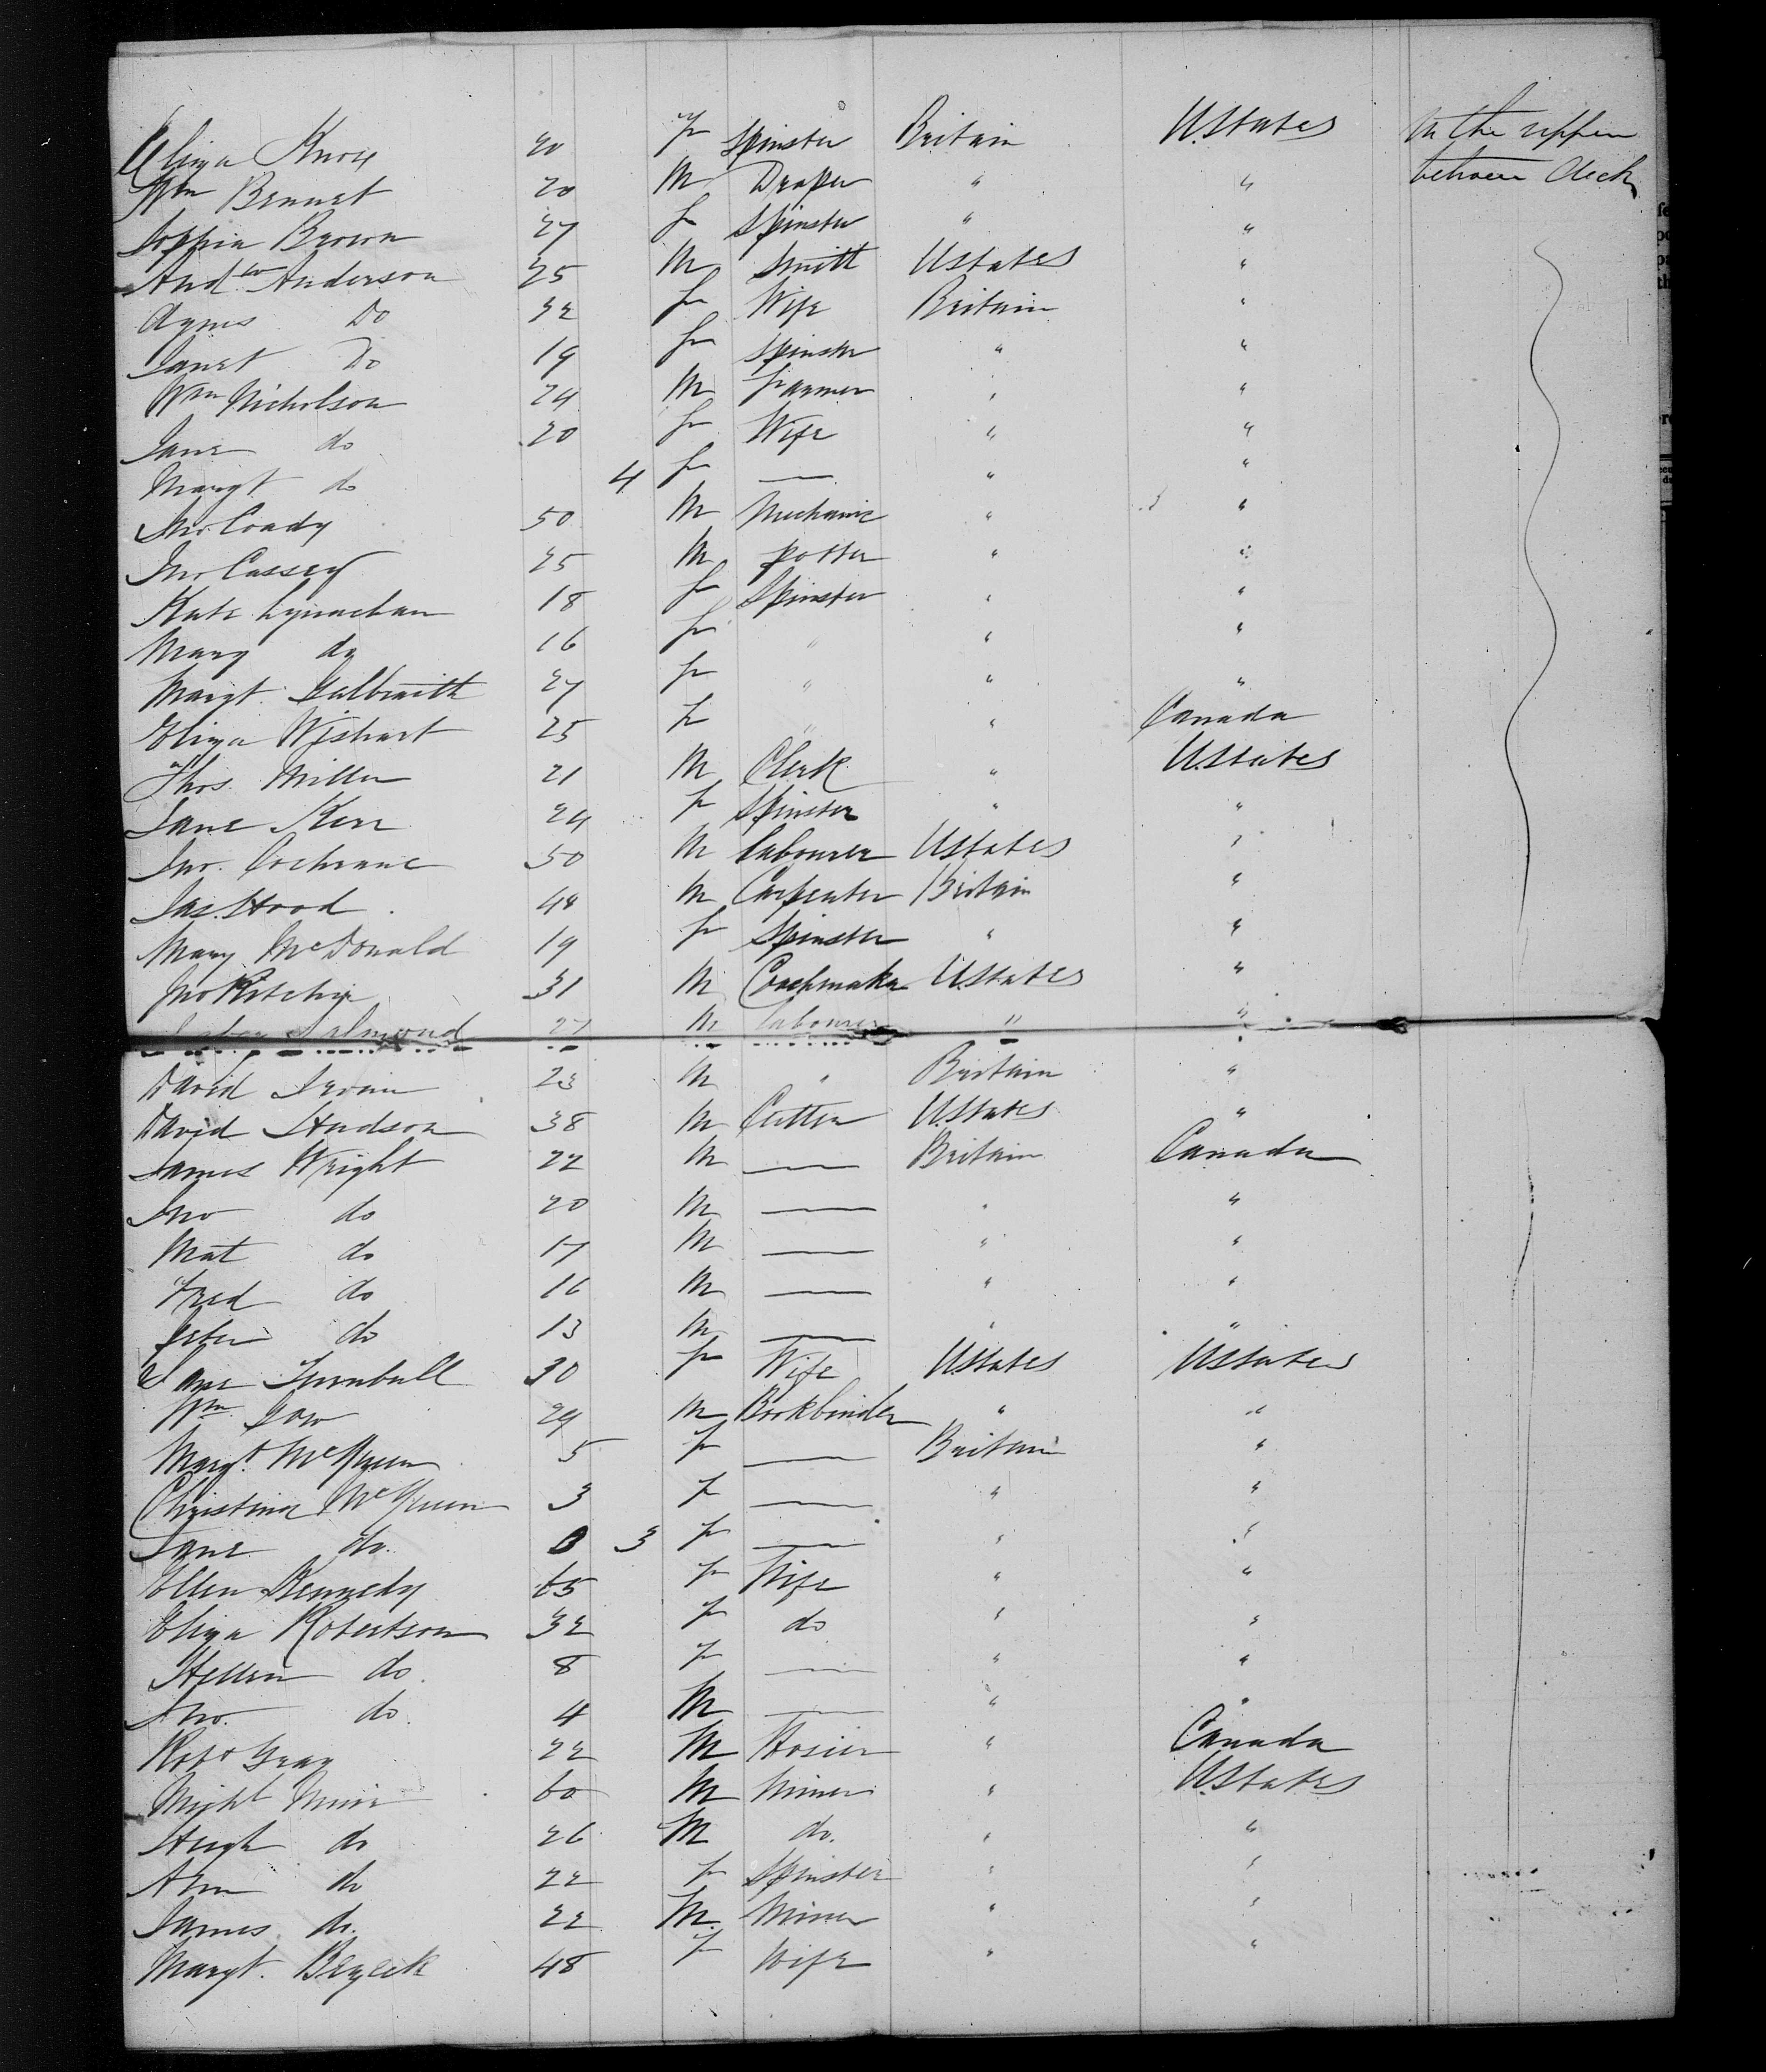 Eliza Knox 20 F Spinster Britain U.States In the upper
Wm Bennet 20 M Draper " " between deck
Sophia Brown 27 F Spinster " "
Andew Anderson 25 M Smith UStates "
Agnes Do 32 F Wife Britain "
Janet Do 19 F Spinster " "
Wm Nicholson 24 M Farmer " "
Jane do 20 F Wife " "
Margt do 4 F — " "
Jno. Coady 50 M Mechanic " "
Jno Cassey 25 M potter " "
Kate Lynachan 18 F Spinster " "
Mary do 16 F " " "
Margt. Galbraith 27 F " " "
Eliza Wishart 25 F " " Canada
Thos. Miller 21 M Clerk " U.States
Jane Kerr 24 F Spinster " "
Jno. Cochrane 50 M labourer UStates "
Jas. Hood 48 M Carpenter Britain "
Mary McDonald 19 F Spinster " "
Jno Ritchie 31 M Coachmaker U.States "
Salmond 27 M labourer " "
David Irvin 23 M " Britain "
David Hudson 38 M Cutter U.States "
James Wright 22 M — Britain Canada
Jno do 20 M — " "
Mat do 17 M — " "
Fred do 16 M — " "
Peter do 13 M — " "
Jane Turnbull 30 F Wife U.States UStates
Wm Low 29 M Bookbinder " "
Margt. McQueen 5 F — Britain "
Christina McQueen 3 F — " "
Jane do. 0 3 F — " "
Ellen Kennedy 65 F Wife " "
Eliza Robertson 32 F do " "
Hellen do. 8 F — " "
Jno. do. 4 M — " "
Robt Gray 22 M Hosier " Canada
Muir 60 M Miner " U.States
Hugh do 26 M do. " "
Ann do 22 F Spinster " "
James do. 22 M. Miner " "
Margt. 48 F Wife " "